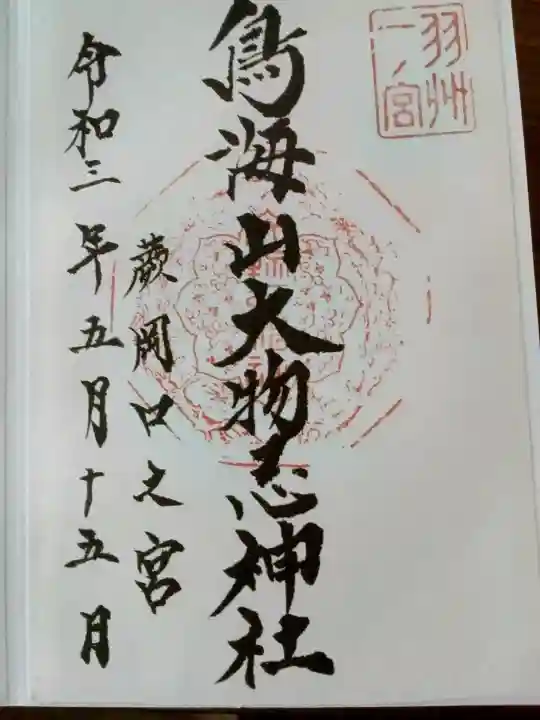 羽州
一ノ宮
鳥海山大物忌神社
蕨岡口之宮
令和三年五月十五日